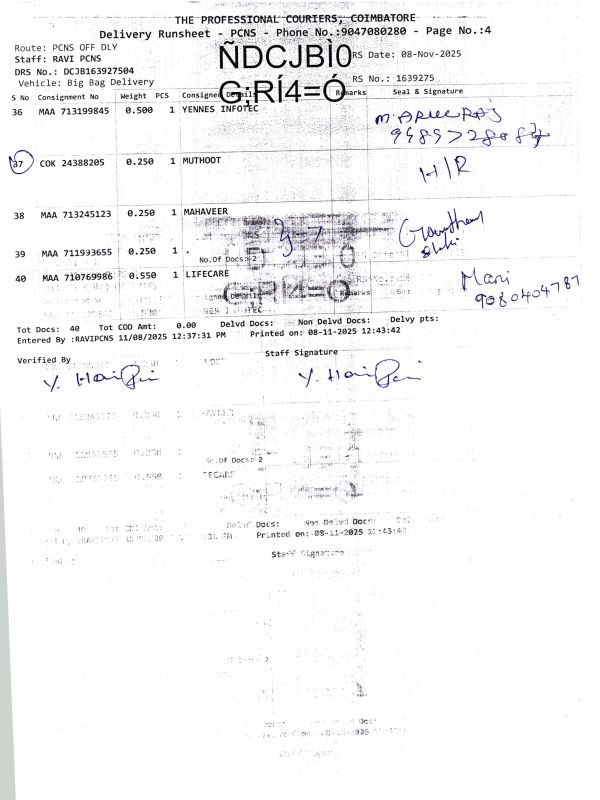 THE PROFESSIONAL COURIERS, COIMBATORE
Delivery Runsheet - PCNS - Phone No.:9047080280 - Page No.:4
Route: PCNS OFF DLY
Staff: RAVI PCNS
ÑDCJBÌ0
RS Date: 08-Nov-2025
DRS No.: DCJB163927504
Vehicle: Big Bag Delivery
G;RÍ4=Ó
RS No.: 1639275
S No Consignment No Weight PCS Consignee Details Remarks Seal & Signature
36 MAA 713199845 0.500 1 YENNES INFOTEC
37 COK 24388205 0.250 1 MUTHOOT
H/R
38 MAA 713245123 0.250 1 MAHAVEER
39 MAA 711993655 0.250 1 .
No.Of Docs: 2
40 MAA 710769986 0.550 1 LIFECARE
Mani
9080404787
Tot Docs: 40 Tot COD Amt: 0.00 Delvd Docs: Non Delvd Docs: Delvy pts:
Entered By :RAVIPCNS 11/08/2025 12:37:31 PM Printed on: 08-11-2025 12:43:42
Verified By Staff Signature
No.Of Docs: 2
Delvd Docs: Non Delvd Docs:
Printed on: 08-11-2025 12:43:42
Staff Signature